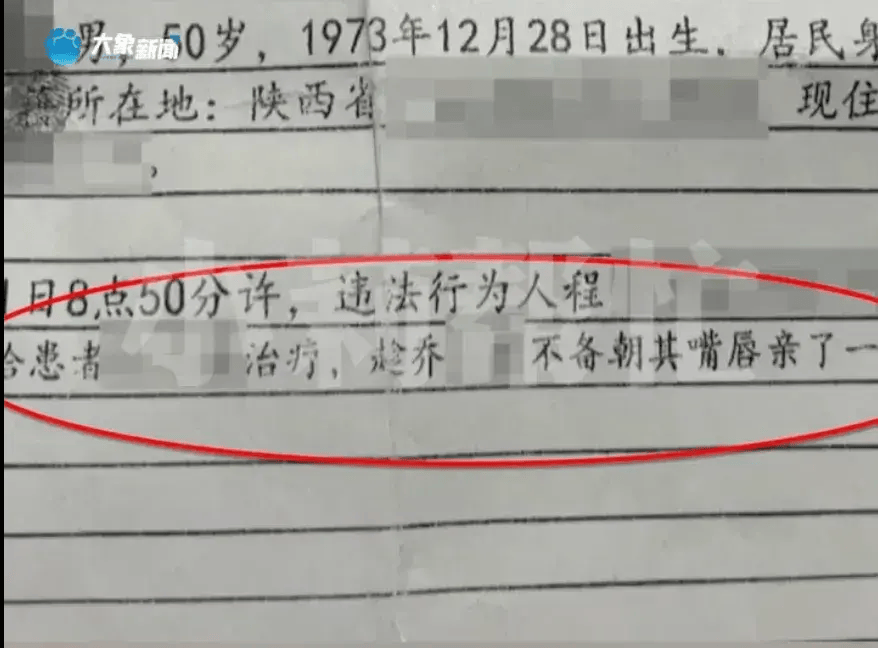 大象新闻
男，50岁，1973年12月28日出生，居民身
所在地：陕西省 现住
，
日8点50分许，违法行为人程
给患者 治疗，趁乔 不备朝其嘴唇亲了一
小莉帮忙